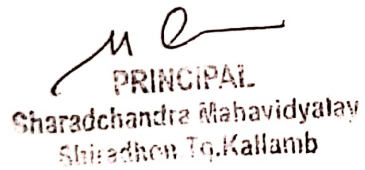 PRINCIPAL
Sharadchandra Mahavidyalay
Shiradhon Tq.Kallamb